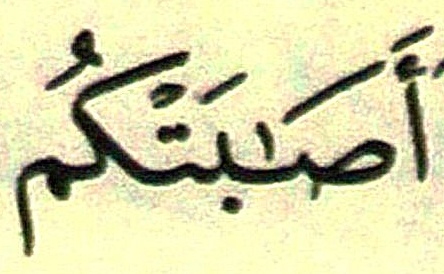 أَصَـٰبَتكُم